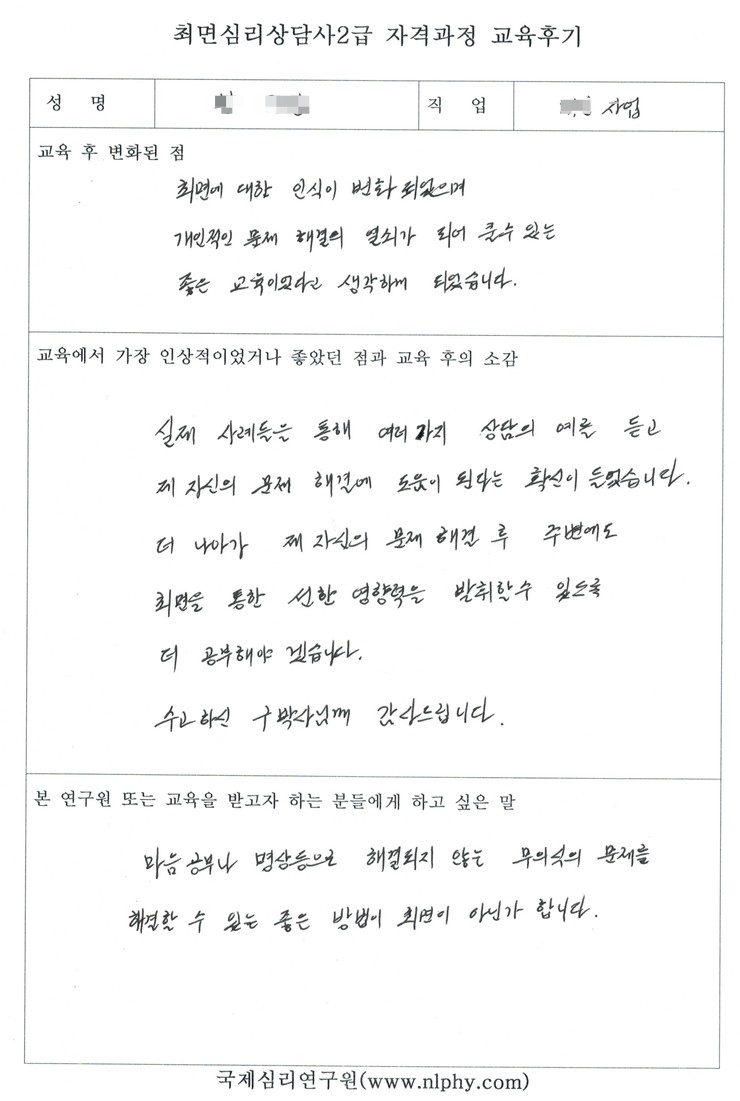 최면심리상담사2급 자격과정 교육후기
성 명
직 업 사업
교육 후 변화된 점
최면에 대한 인식이 변화 되었으며
개인적인 문제 해결의 열쇠가 되어 줄수 있는
좋은 교육이었다고 생각하게 되었습니다.
교육에서 가장 인상적이었거나 좋았던 점과 교육 후의 소감
실제 사례들을 통해 여러가지 상담의 예를 듣고
제 자신의 문제 해결에 도움이 된다는 확신이 들었습니다.
더 나아가 제 자신의 문제 해결 후 주변에도
최면을 통한 선한 영향력을 발휘할수 있도록
더 공부해야 겠습니다.
수고하신 구박사님께 감사드립니다.
본 연구원 또는 교육을 받고자 하는 분들에게 하고 싶은 말
마음공부나 명상등으로 해결되지 않는 무의식의 문제를
해결할 수 있는 좋은 방법이 최면이 아닌가 합니다.
국제심리연구원(www.nlphy.com)